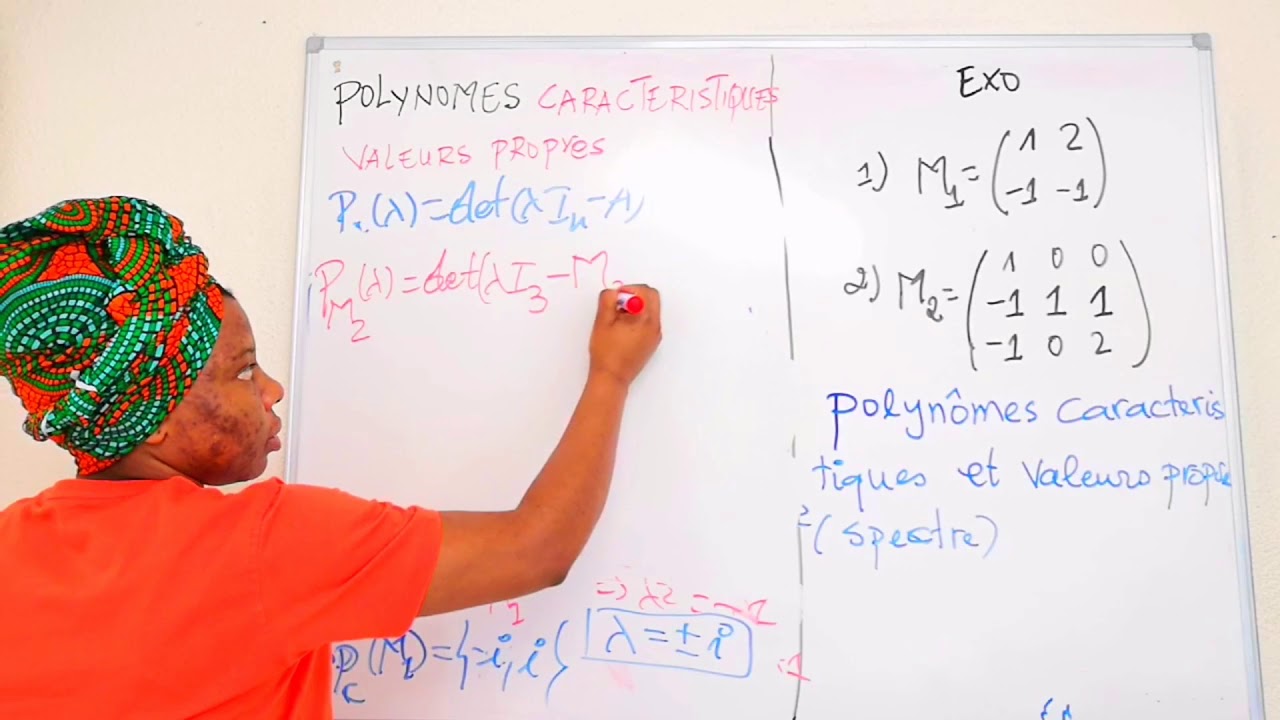 POLYNOMES CARACTERISTIQUES
VALEURS PROPRES
P.(λ)=det(λI_n-A)
P_M_2(λ)=det(λI_3-M
=> λ2 = -1
(M_1)={-i, i} λ=±i
EXO
1) M_1=(1 2
-1 -1)
2) M_2=(1 0 0
-1 1 1
-1 0 2)
polynômes caracteris
tiques et valeurs propre
(spectre)